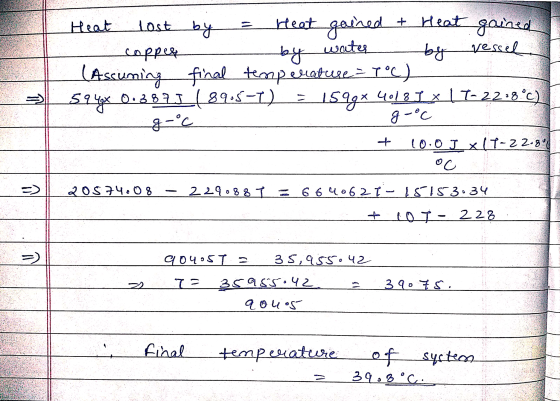 Heat lost by = Heat gained + Heat gained
copper by water by vessel
(Assuming final temperature = T°C)
⇒ 594g× 0.387J/g-°C (89.5-T) = 159g× 4.18J/g-°C × (T-22.8°C)
+ 10.0 J/°C × (T-22.8°
⇒ 20574.08 - 229.88T = 664.62T - 15153.34
+ 10T - 228
⇒ 904.5T = 35,955.42
⇒ T = 35955.42/904.5 = 39.75.
∴ Final temperature of system
= 39.8°C.